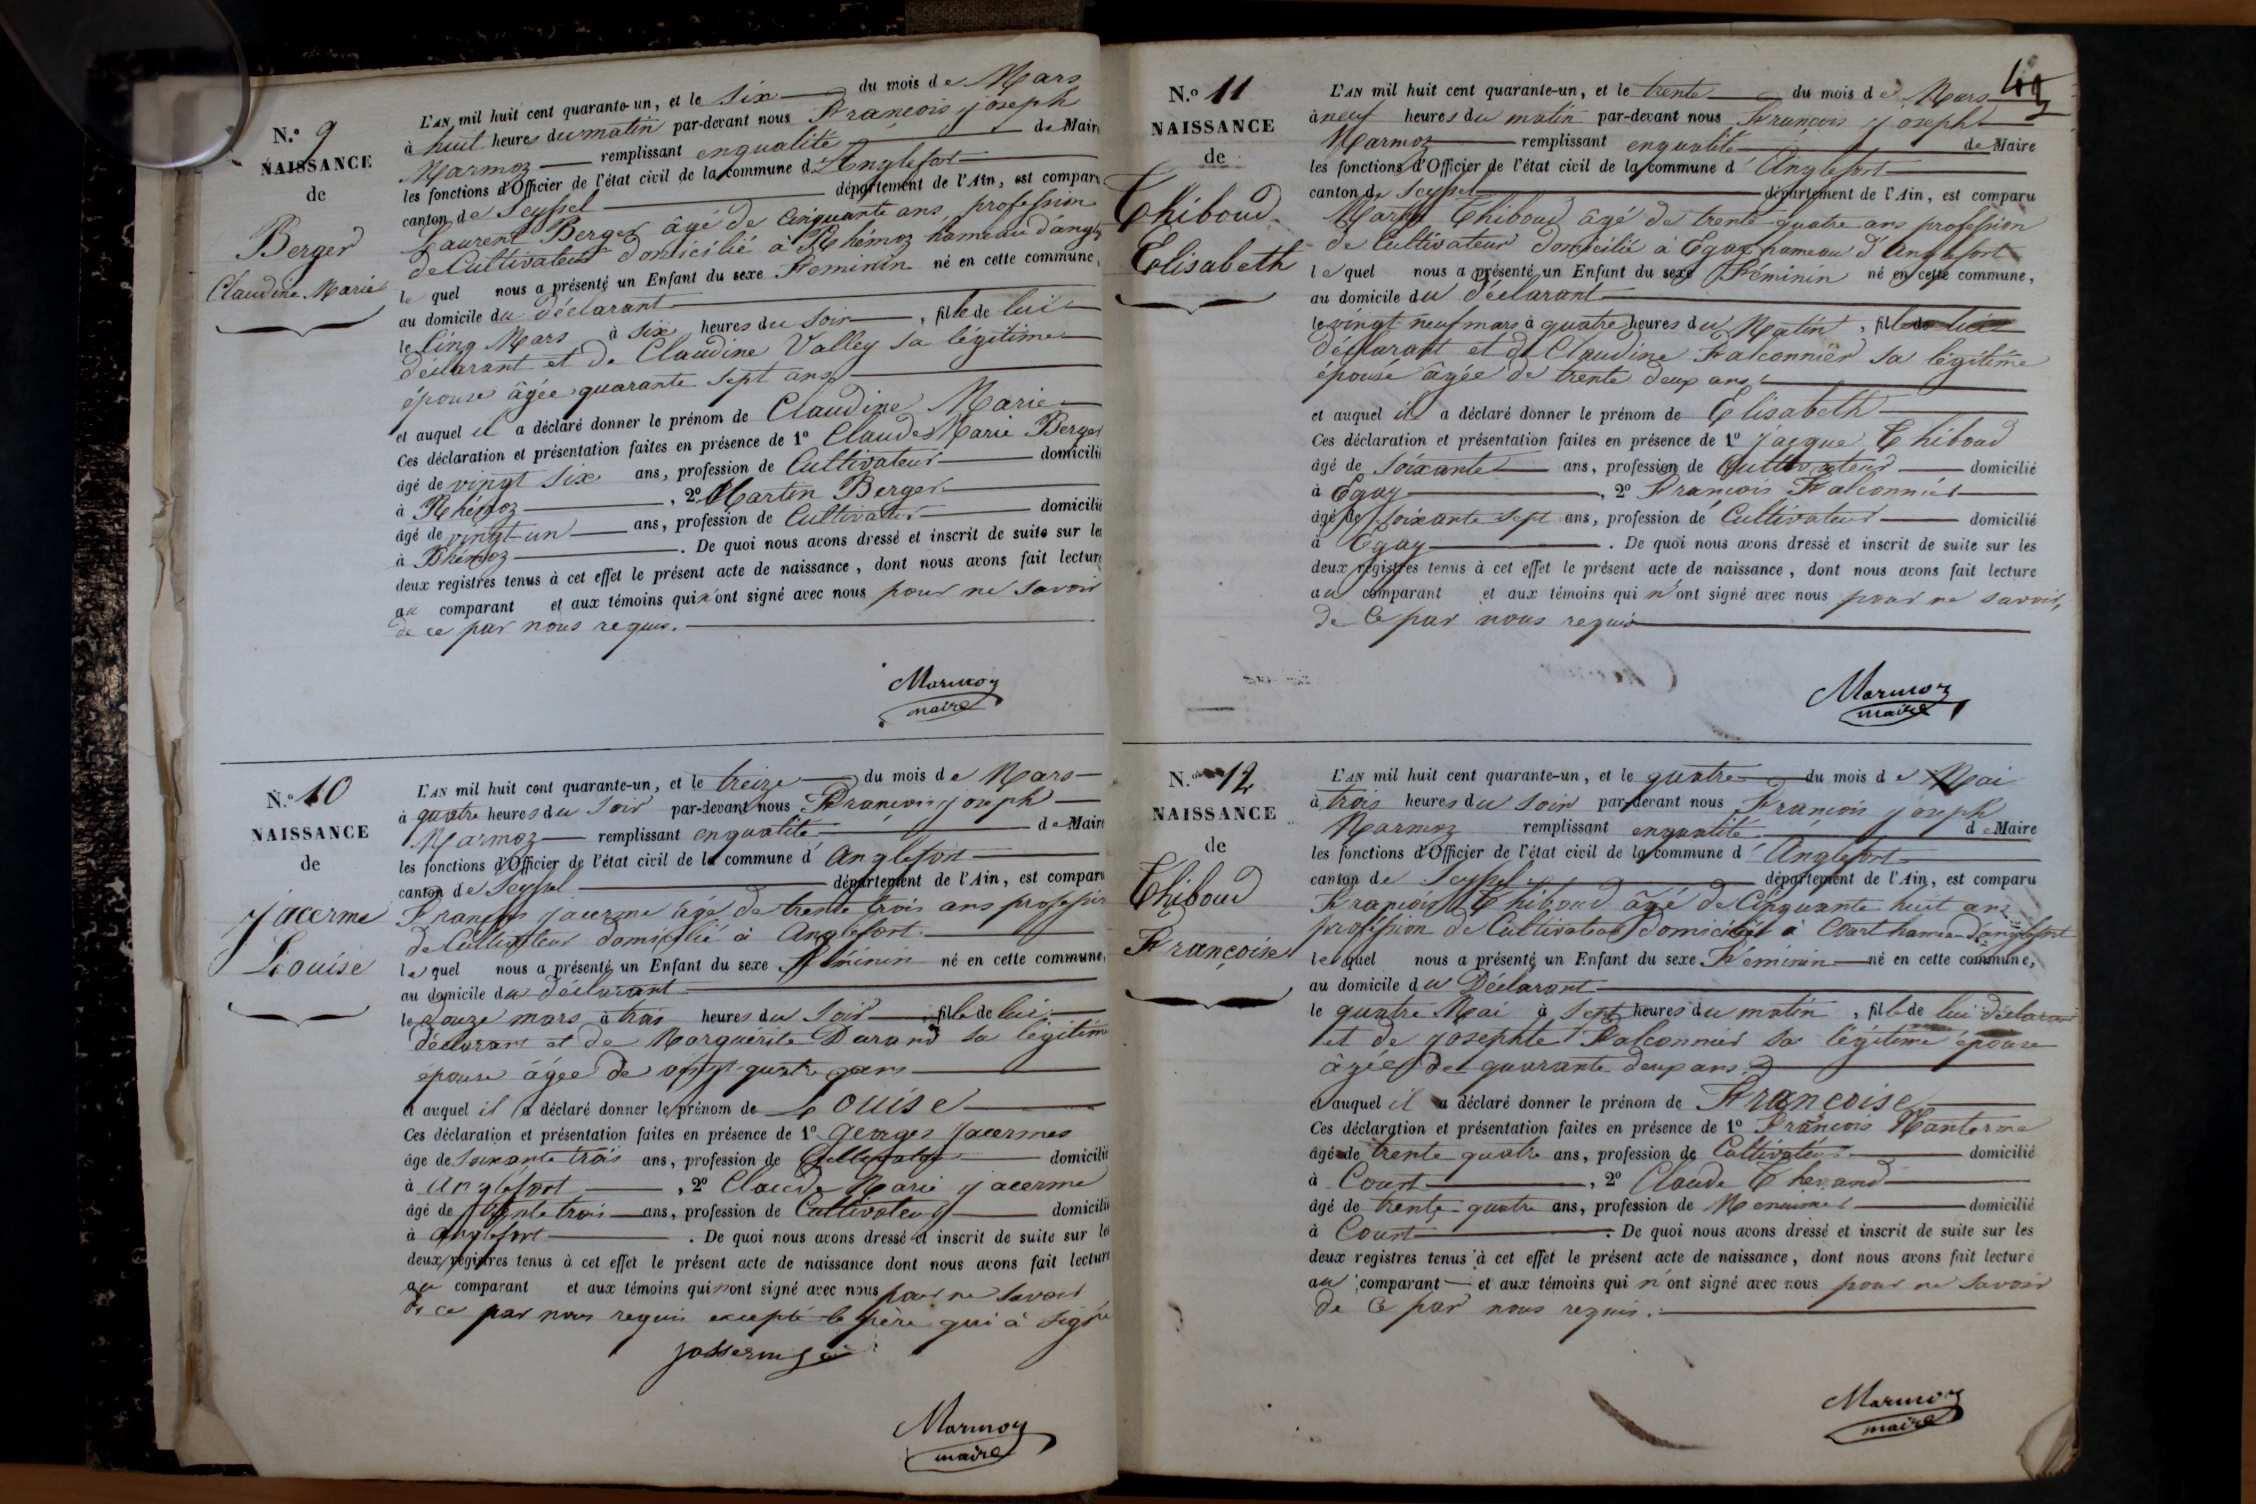 N.º 9
NAISSANCE
de
Berger
Claudine Marie
L'AN mil huit cent quarante-un, et le six du mois de Mars
à huit heures du matin par-devant nous François joseph
Marmoz remplissant en qualité de Maire
les fonctions d'Officier de l'état civil de la commune d'Anglefort
canton de Seyssel département de l'Ain, est comparu
Laurent Berger âgé de Cinquante ans, profession
de Cultivateur domicilié à Rhémoz hameau d'angle
le quel nous a présenté un Enfant du sexe Feminin né en cette commune,
au domicile du déclarant
le Cinq Mars à six heures du Soir, fille de lui
déclarant et de Claudine Valley sa légitime
épouse âgée quarante sept ans
et auquel il a déclaré donner le prénom de Claudine Marie
Ces déclaration et présentation faites en présence de 1º Claude Marie Berger
âgé de vingt six ans, profession de Cultivateur domicilié
à Rhémoz, 2º Martin Berger
âgé de vingt-un ans, profession de Cultivateur domicilié
à Rhémoz. De quoi nous avons dressé et inscrit de suite sur les
deux registres tenus à cet effet le présent acte de naissance, dont nous avons fait lecture
au comparant et aux témoins qui n'ont signé avec nous pour ne savoir
de ce par nous requis.
Marmoz
maire
N.º 10
NAISSANCE
de
jacerme
Louise
L'AN mil huit cent quarante-un, et le treize du mois de Mars
à quatre heures du Soir par-devant nous François joseph
Marmoz remplissant en qualité de Maire
les fonctions d'Officier de l'état civil de la commune d'Anglefort
canton de Seyssel département de l'Ain, est comparu
François jacerme âgé de trente trois ans profession
de Cultivateur domicilié à Anglefort
le quel nous a présenté un Enfant du sexe féminin né en cette commune,
au domicile du déclarant
le douze mars à trois heures du Soir, fille de lui
déclarant et de Marguérite Durand sa légitime
épouse âgée de vingt quatre ans
et auquel il a déclaré donner le prénom de Louise
Ces déclaration et présentation faites en présence de 1º georges jacermes
âge de soixante trois ans, profession de Cultivateur domicilié
à Anglefort, 2º Claude Marie jacerme
âgé de trente trois ans, profession de Cultivateur domicilié
à Anglefort. De quoi nous avons dressé et inscrit de suite sur les
deux registres tenus à cet effet le présent acte de naissance dont nous avons fait lecture
au comparant et aux témoins qui n'ont signé avec nous pour ne savoir
de ce par nous requis excepté le père qui à signé
Marmoz
maire
49
N.º 11
NAISSANCE
de
Thiboud
Elisabeth
L'AN mil huit cent quarante-un, et le trente du mois de Mars
à neuf heures du matin par-devant nous François joseph
Marmoz remplissant en qualité de Maire
les fonctions d'Officier de l'état civil de la commune d'Anglefort
canton de Seyssel département de l'Ain, est comparu
Martin Thiboud âgé de trente-quatre ans profession
de Cultivateur domicilié à Egay hameau d'Anglefort
le quel nous a présenté un Enfant du sexe Féminin né en cette commune,
au domicile du déclarant
le vingt neuf mars à quatre heures du Matin, fille de lui
déclarant et de Claudine Falconnier sa légitime
épouse âgée de trente deux ans
et auquel il a déclaré donner le prénom de Elisabeth
Ces déclaration et présentation faites en présence de 1º jacque Thiboud
âgé de soixante ans, profession de Cultivateur domicilié
à Egay, 2º François Falconnier
âgé de soixante sept ans, profession de Cultivateur domicilié
à Egay. De quoi nous avons dressé et inscrit de suite sur les
deux registres tenus à cet effet le présent acte de naissance, dont nous avons fait lecture
au comparant et aux témoins qui n'ont signé avec nous pour ne savoir,
de Ce par nous requis
Marmoz
maire
N.º 12
NAISSANCE
de
Thiboud
Françoise
L'AN mil huit cent quarante-un, et le quatre du mois de Mai
à trois heures du soir par-devant nous François joseph
Marmoz remplissant en qualité de Maire
les fonctions d'Officier de l'état civil de la commune d'Anglefort
canton de Seyssel département de l'Ain, est comparu
François Thiboud âgé de Cinquante huit ans
profession de Cultivateur domicilié à Court hameau d'anglefort
le quel nous a présenté un Enfant du sexe Féminin né en cette commune,
au domicile du Déclarant
le quatre Mai à Sept heures du matin, fille de lui déclarant
et de josephte Falconnier sa légitime épouse
âgée de quarante deux ans
et auquel il a déclaré donner le prénom de Françoise
Ces déclaration et présentation faites en présence de 1º François Manterme
âgé de trente quatre ans, profession de Cultivateur domicilié
à Court, 2º Claude Thevand
âgé de trente-quatre ans, profession de domicilié
à Court. De quoi nous avons dressé et inscrit de suite sur les
deux registres tenus à cet effet le présent acte de naissance, dont nous avons fait lecture
au comparant et aux témoins qui n'ont signé avec nous pour ne savoir
de Ce par nous requis.
Marmoz
maire